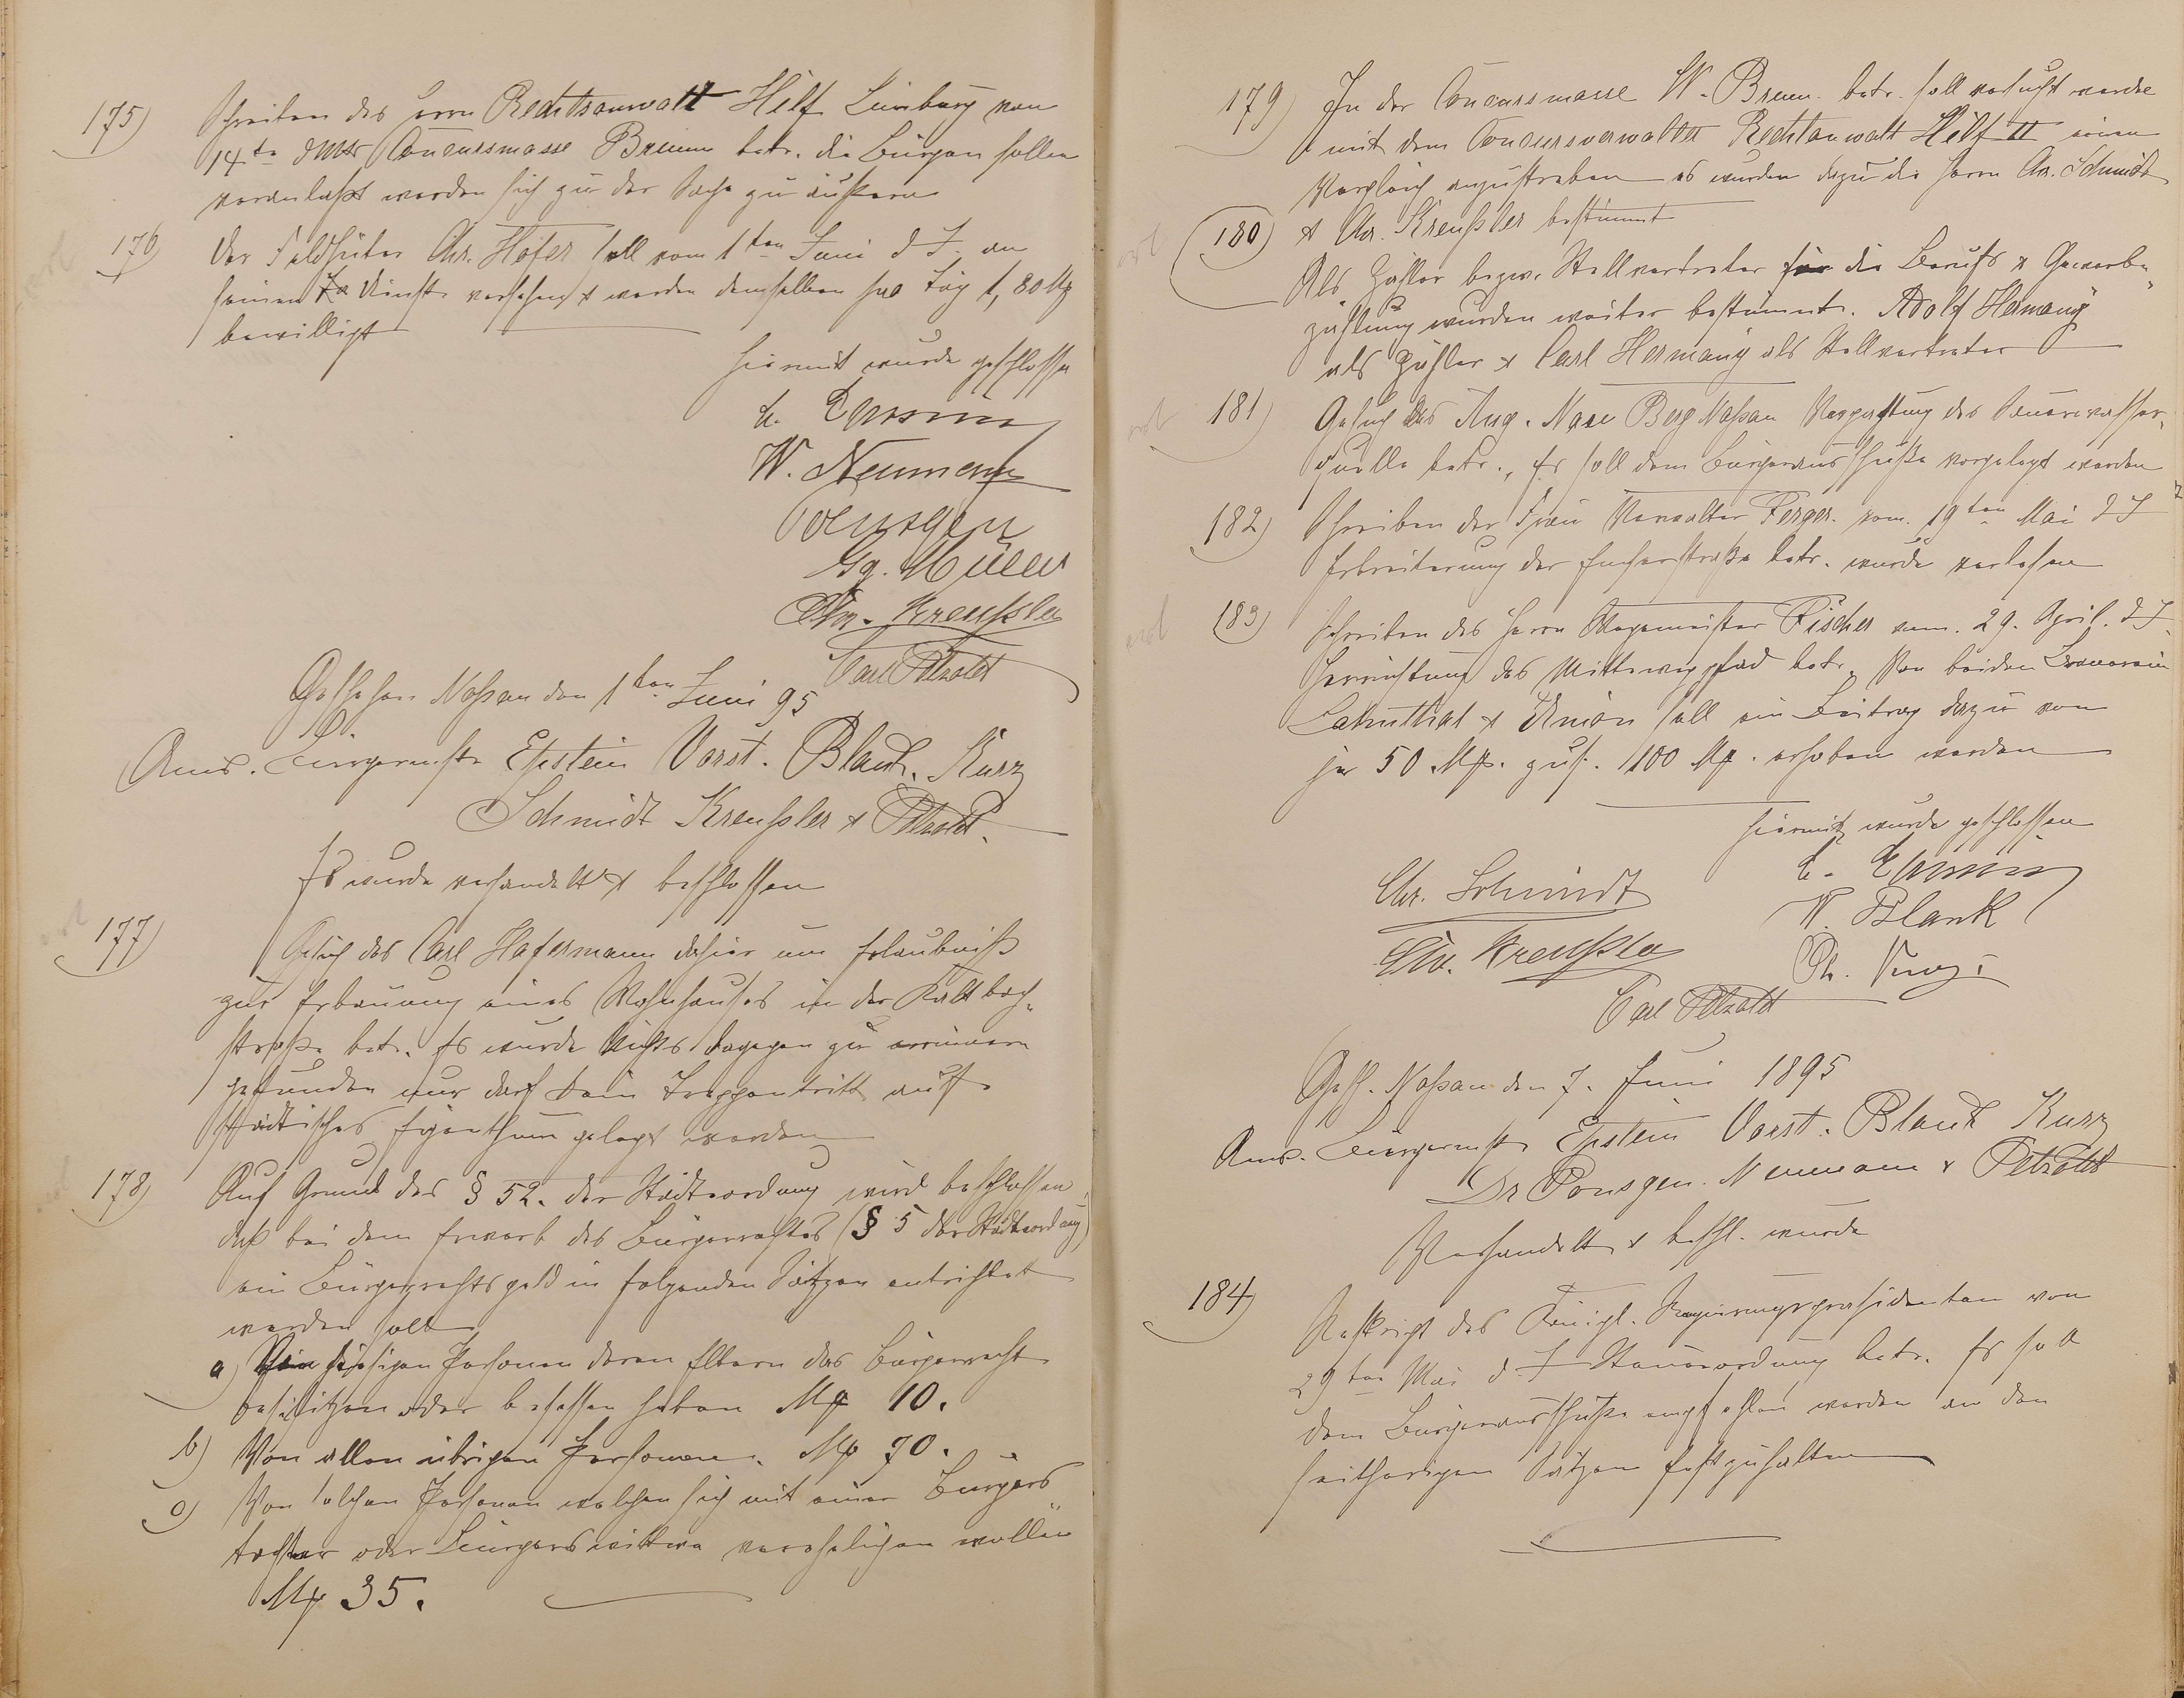 175) Schreiben des Herrn Rechtsanwalt Hilf Limburg vom
14ten Concursmasse Brunn betr. die Bürgen sollen
veranlaßt werden sich zu der Sache zu äußern
176) Der Feldhüter Chr. Hofer soll vom 1ten Juni d J. an
seinen Dienst versehen & werden demselben pro Tag 1,80 Mk
bewilligt
Hiermit wurde geschlossen
W. Neumann
Poensgen
Gg. Müller
Chr. Kreußler
Carl Petzoldt
Geschehen Naßau den 1ten Juni 95
Anw. Bürgermstr Epstein Vorst. Blank, Kurz
Schmidt Kreußler & Petzoldt.
Es wurde verhandelt & beschlossen
177) Gesuch des Carl Hafermann dahier um Erlaubniß
zur Erbauung eines Wohnhauses in der Kaltbach-
straße betr. Es wurde Nichts dagegen zu erinnern
gefunden nur darf kein Treppentritt auf
städtisches Eigenthum gelegt werden
178) Auf Grund des § 52. der Städteordnung wird beschlossen
daß bei dem Erwerb des Bürgerrechtes (§ 5 der Städteordnung)
ein Bürgerrechtsgeld in folgenden Sätzen entrichtet
werden soll
a) Von hiesigen Personen deren Eltern das Bürgerrecht
besitzen oder besessen haben Mk 10.
b) Von allen übrigen Personen. Mk 70.
c) Von solchen Personen welche sich mit einer Bürgers
tochter oder Bürgerswittwe verehelichen wollen
Mk 35.
179) In der Concursmasse W. Brunn. betr. soll versucht werden
mit dem Concursverwalter Rechtanwalt Hilf II einen
Vergleich anzustreben es wurden dazu die Herrn Chr. Schmidt
& Chr. Kreußler bestimmt
180) Als Zähler bezw. Stellvertreter für die Berufs & Gewerbe-
zählung wurden weiter bestimmt. Adolf Hermany
als Zähler & Carl Hermany als Stellvertreter
181) Gesuch des Aug. Berg Naßau Verpachtung des Sauerwasser-
quelle betr., Es soll dem Bürgerausschuße vorgelegt werden
182) Schreiben der Frau Verwalter Ferger. vom. 19ten Mai d J
Erbreiterung der Emserstraße betr. wurde verlesen
183) Schreiben des Herrn Wegemeister Fischer vom. 29. April. d J.
Herrichtung des Mittwegpfad betr. Von beiden
Lahnthal & Union soll ein Beitrag dazu von
je 50 Mk. zus. 100 Mk. erhoben werden
Hiermit wurde geschlossen
Chr. Schmidt
W. Blank
Chr. Kreußler
Ph. Kurz
Carl Petzoldt
Gesch. Naßau den 7. Juni 1895
Anw. Bürgermstr Epstein Vorst. Blank Kurz
Dr Poensgen. Neumann & Petzoldt
Verhandelt & beschl. wurde
184) Reskript des Königl. Regierungspräsidenten vom
29ten Mai d. J Steuerordnung betr. Es soll
dem Bürgerausschuße empfohlen werden an den
seitherigen Sätzen festzuhalten